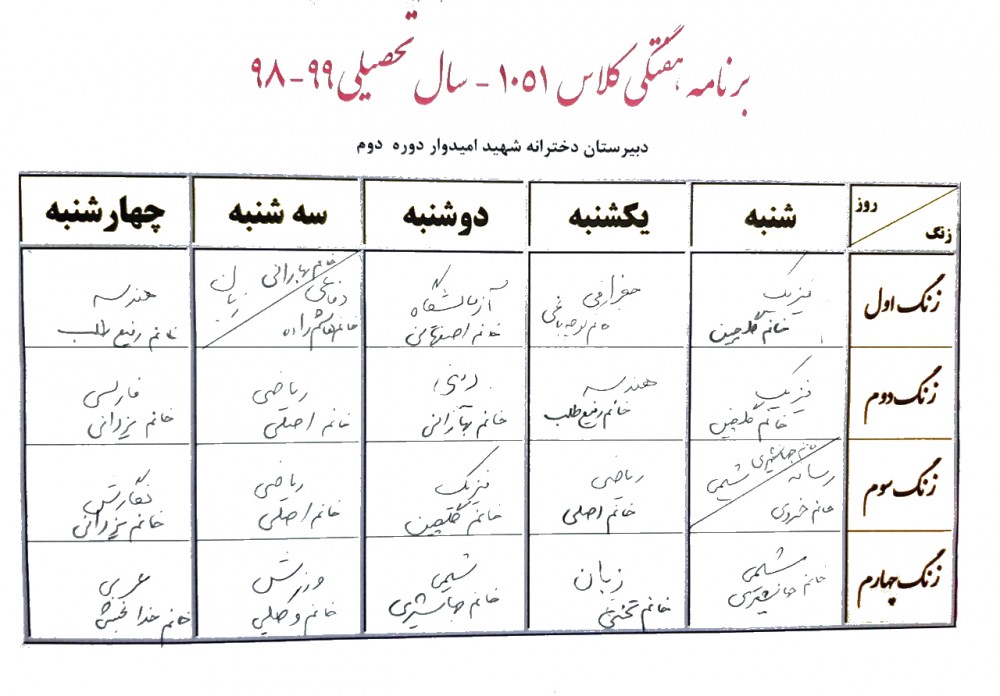 برنامه هفتگی کلاس ۱۰۵۱ - سال تحصیلی ۹۹-۹۸
دبیرستان دخترانه شهید امیدوار دوره دوم
روز
زنگ
شنبه
یکشنبه
دوشنبه
سه شنبه
چهارشنبه
زنگ اول
فیزیک
خانم گلچین
جغرافی
خانم
آزمایشگاه
خانم اصفهانی
زبان
خانم بهارانی
دفاعی
خانم هاشم زاده
هندسه
خانم رفیع طلب
زنگ دوم
فیزیک
خانم گلچین
هندسه
خانم رفیع طلب
دینی
خانم بهارانی
ریاضی
خانم اصلی
فارسی
خانم یزدانی
زنگ سوم
خانم جمشیری
شیمی
رسانه
خانم خسروی
ریاضی
خانم اصلی
فیزیک
خانم گلچین
ریاضی
خانم اصلی
نگارش
خانم یزدانی
زنگ چهارم
شیمی
خانم
زبان
خانم
شیمی
خانم
ورزش
خانم وکیلی
عربی
خانم خدابخش